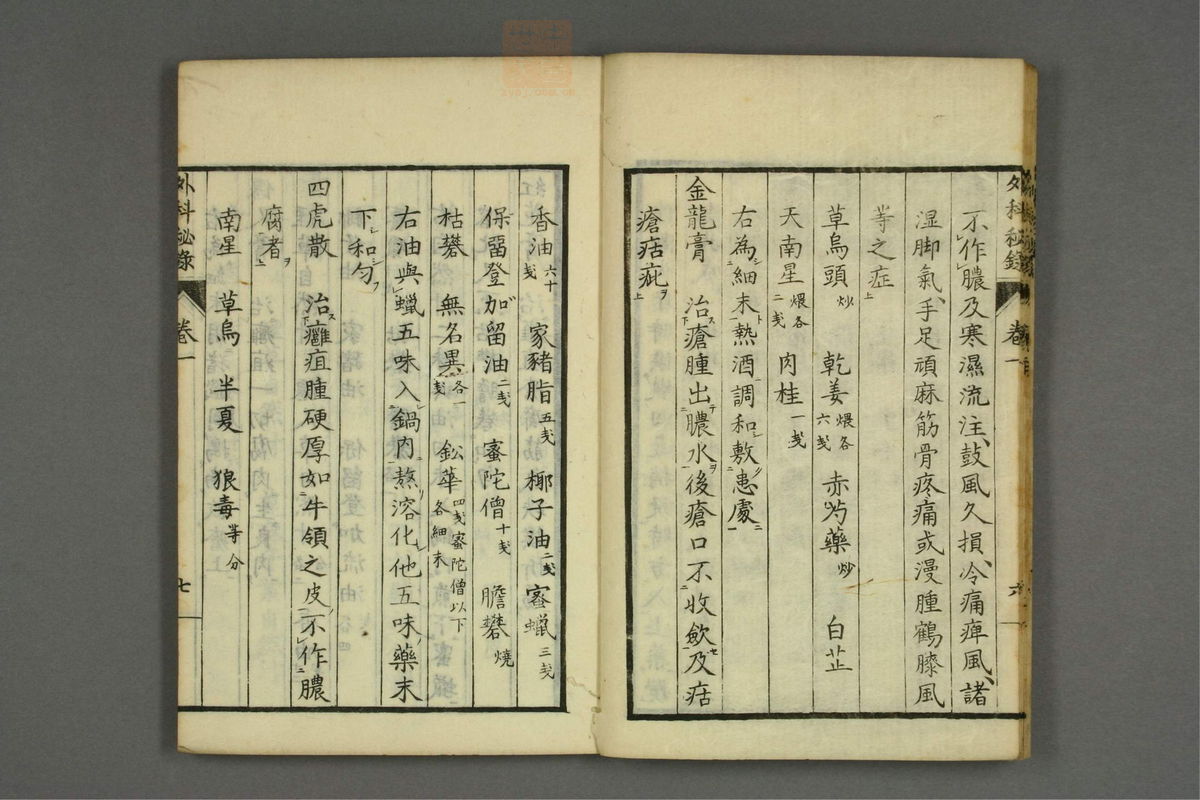 外科秘錄 卷一 六
不作膿及寒濕流注、鼓風久損、冷痛痺風、諸
湿脚氣、手足頑麻筋骨疼痛或漫腫鶴膝風
等之症
草烏頭炒 乾姜煨各六戔 赤芍藥炒 白芷
天南星煨各二戔 肉桂一戔
右為細末熱酒調和敷患處
金龍膏 治瘡腫出膿水後瘡口不收歛及痞
瘡痞疵
香油六十戔 家豬脂五戔 椰子油二戔 蜜蠟三戔
保留登加留油二戔 蜜陀僧十戔 膽礬燒
枯礬 無名異各一戔 鉛華四戔蜜陀僧以下各細末
右油與蠟五味入鍋内熬溶化他五味藥末
下和勻
四虎散 治癰疽腫硬厚如牛領之皮不作膿
腐者
南星 草烏 半夏 狼毒等分
外科秘錄 卷一 七